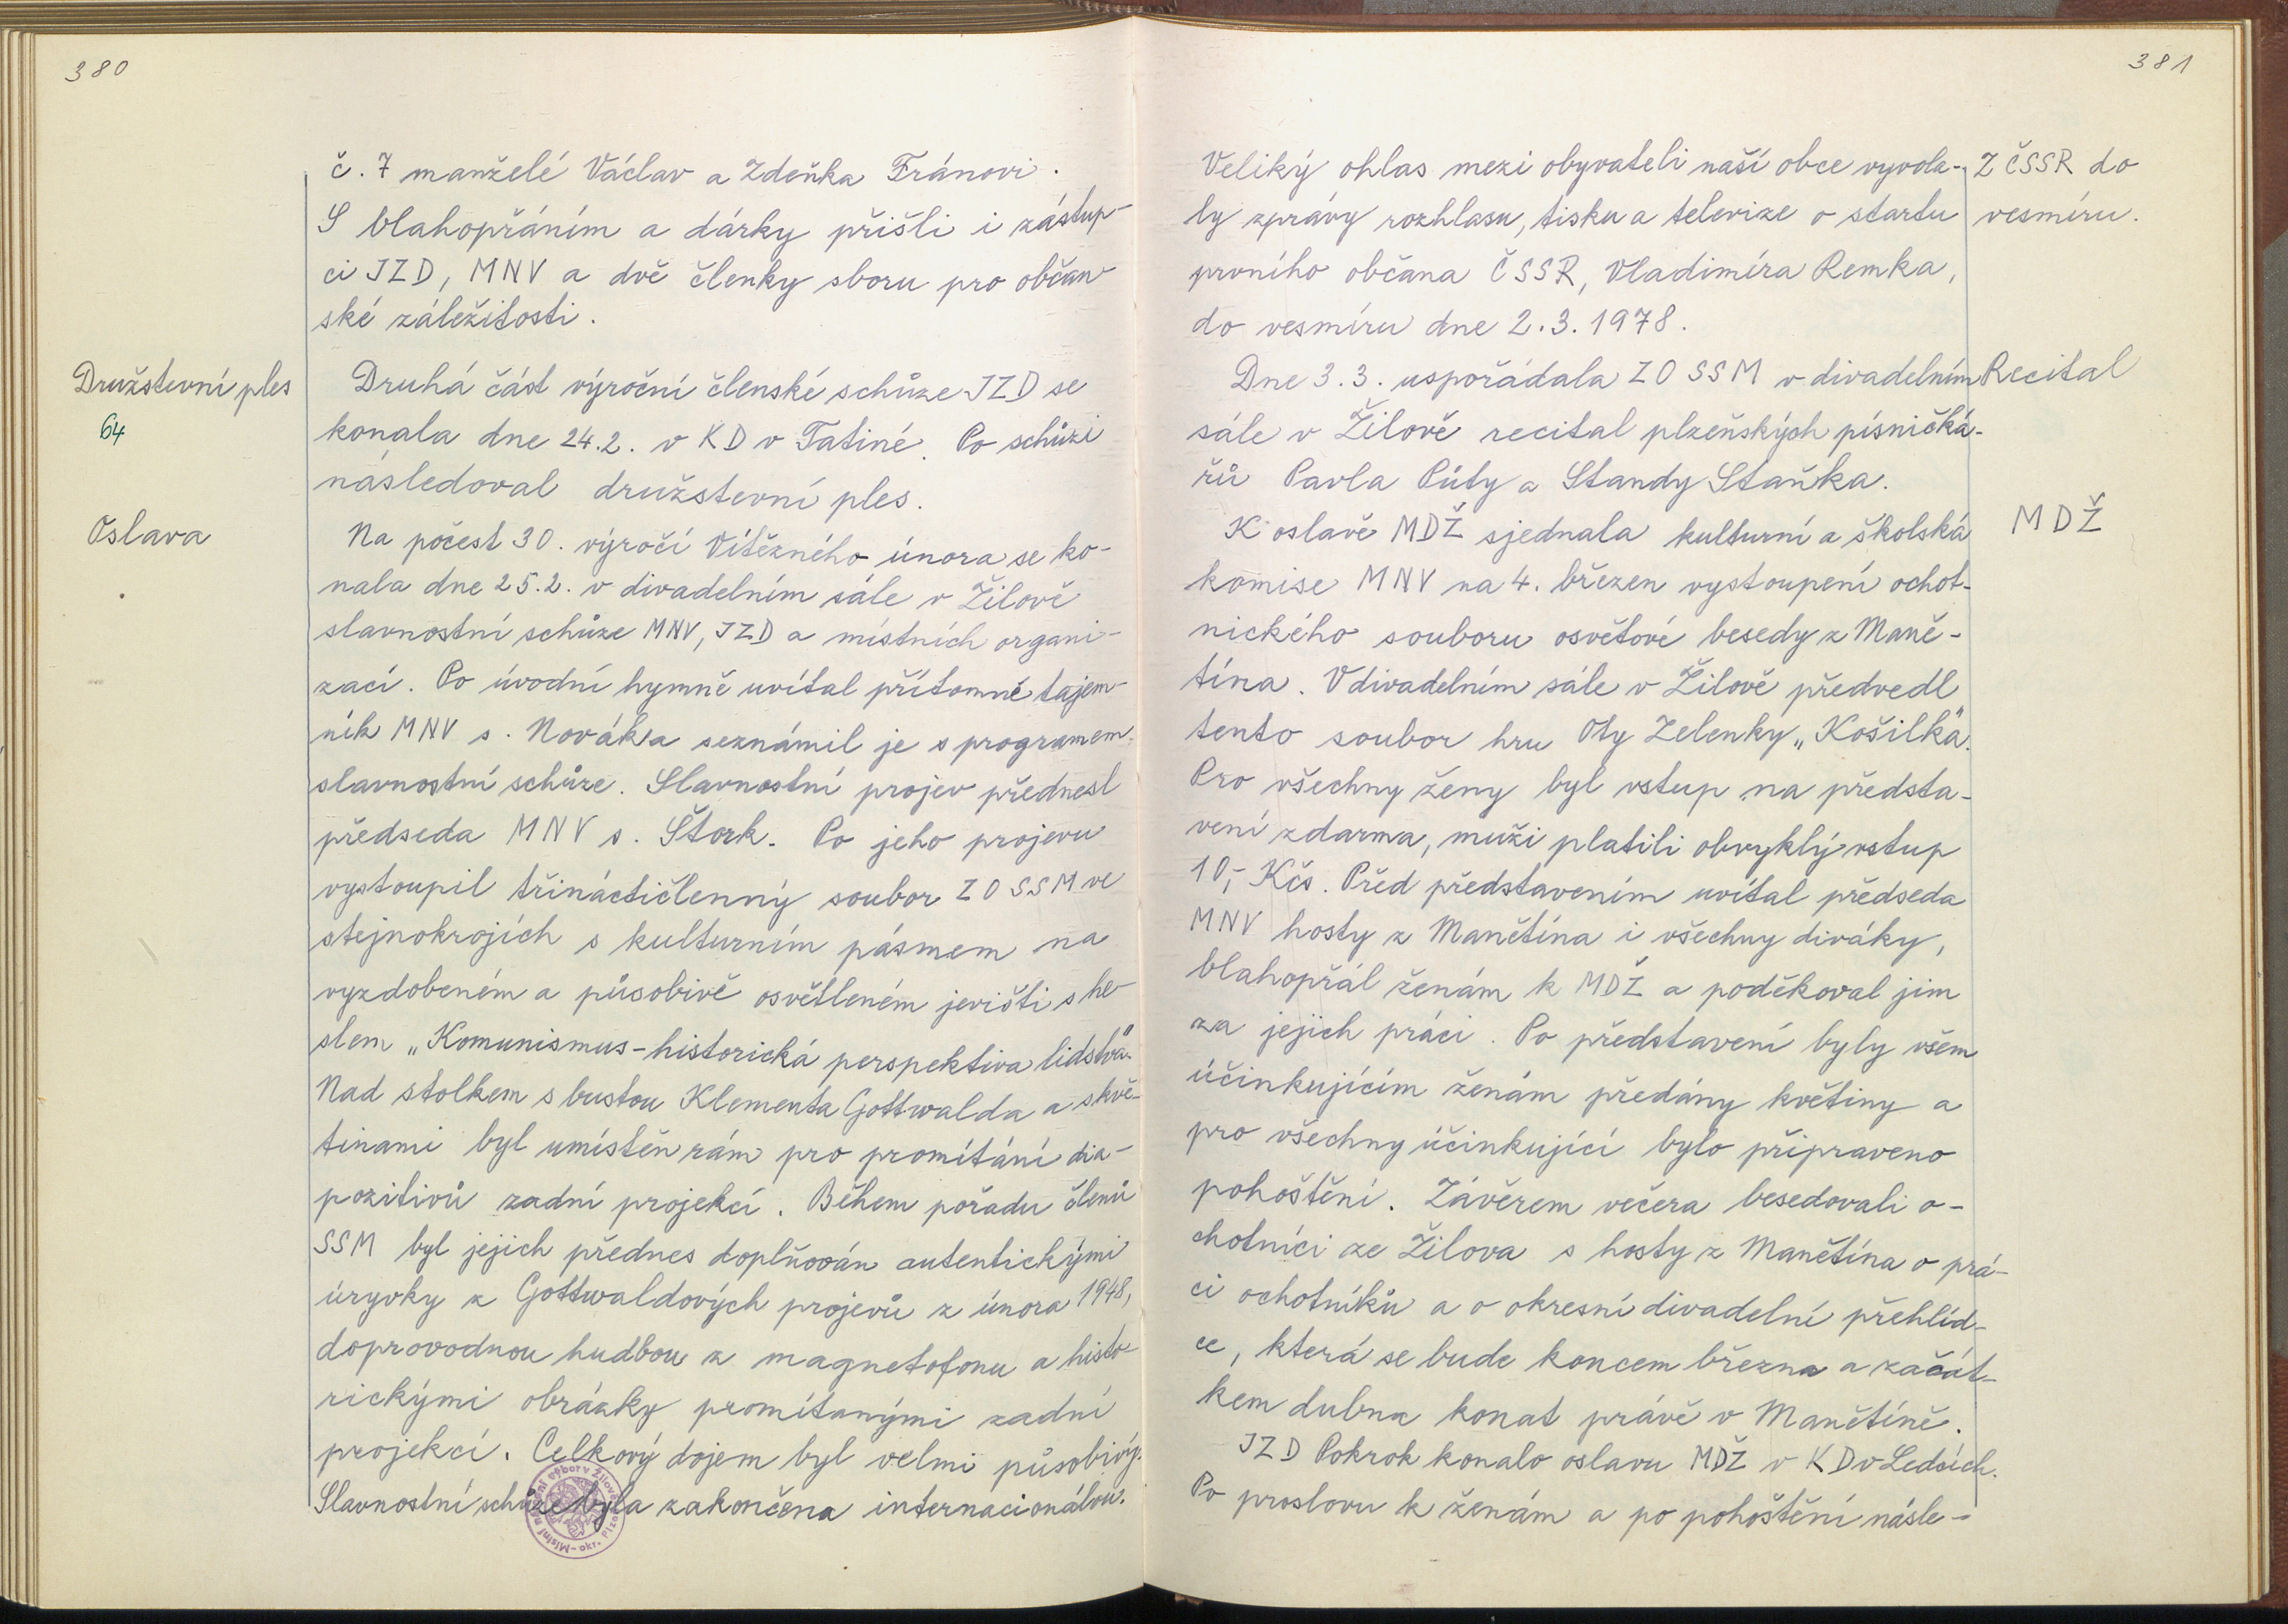 380
č. 7 manželé Václav a Zdeňka Fránovi.
S blahopřáním a dárky přišli i zástup-
ci JZD, MNV a dvě členky sboru pro občan-
ské záležitosti.
Družstevní ples
64
Druhá část výroční členské schůze JZD se
konala dne 24.2. v KD v Tatiné. Po schůzi
následoval družstevní ples.
Oslava
Na počest 30. výročí Vítězného února se ko-
nala dne 25.2. v divadelním sále v Žilově
slavnostní schůze MNV, JZD a místních organi-
zací. Po úvodní hymně uvítal přítomné tajem-
ník MNV s. Novák a seznámil je s programem
slavnostní schůze. Slavnostní projev přednesl
předseda MNV s. Štork. Po jeho projevu
vystoupil třináctičlenný soubor ZO SSM ve
stejnokrojích s kulturním pásmem na
vyzdobeném a působivě osvětleném jevišti s he-
slem „Komunismus-historická perspektiva lidstva".
Nad stolkem s bustou Klementa Gottwalda a s kvě-
tinami byl umístěn rám pro promítání dia-
pozitivů zadní projekcí. Během pořadu členů
SSM byl jejich přednes doplňován autentickými
úryvky z Gottwaldových projevů z února 1948,
doprovodnou hudbou z magnetofonu a histo-
rickými obrázky promítanými zadní
projekcí. Celkový dojem byl velmi působivý.
Slavnostní schůze byla zakončena internacionálou.
Místní národní výbor v Žilově
okr. Plzeň
381
Veliký ohlas mezi obyvateli naší obce vyvola-
ly zprávy rozhlasu, tisku a televize o startu
prvního občana ČSSR, Vladimíra Remka,
do vesmíru dne 2.3.1978.
Z ČSSR do
vesmíru.
Dne 3.3. uspořádala ZO SSM v divadelním
sále v Žilově recital plzeňských písničká-
řů Pavla Půty a Standy Staňka.
Recital
K oslavě MDŽ sjednala kulturní a školská
komise MNV na 4. březen vystoupení ochot-
nického souboru osvětové besedy z Maně-
tína. V divadelním sále v Žilově předvedl
tento soubor hru Oty Zelenky „Košilka".
Pro všechny ženy byl vstup na předsta-
vení zdarma, muži platili obvyklý vstup
10,- Kčs. Před představením uvítal předseda
MNV hosty z Manětína i všechny diváky,
blahopřál ženám k MDŽ a poděkoval jim
za jejich práci. Po představení byly všem
účinkujícím ženám předány květiny a
pro všechny účinkující bylo připraveno
pohoštění. Závěrem večera besedovali o-
chotníci ze Žilova s hosty z Manětína o prá-
ci ochotníků a o okresní divadelní přehlíd-
ce, která se bude koncem března a začát-
kem dubna konat právě v Manětíně.
JZD Pokrok konalo oslavu MDŽ v KD v Ledcích.
Po proslovu k ženám a po pohoštění násle-
MDŽ